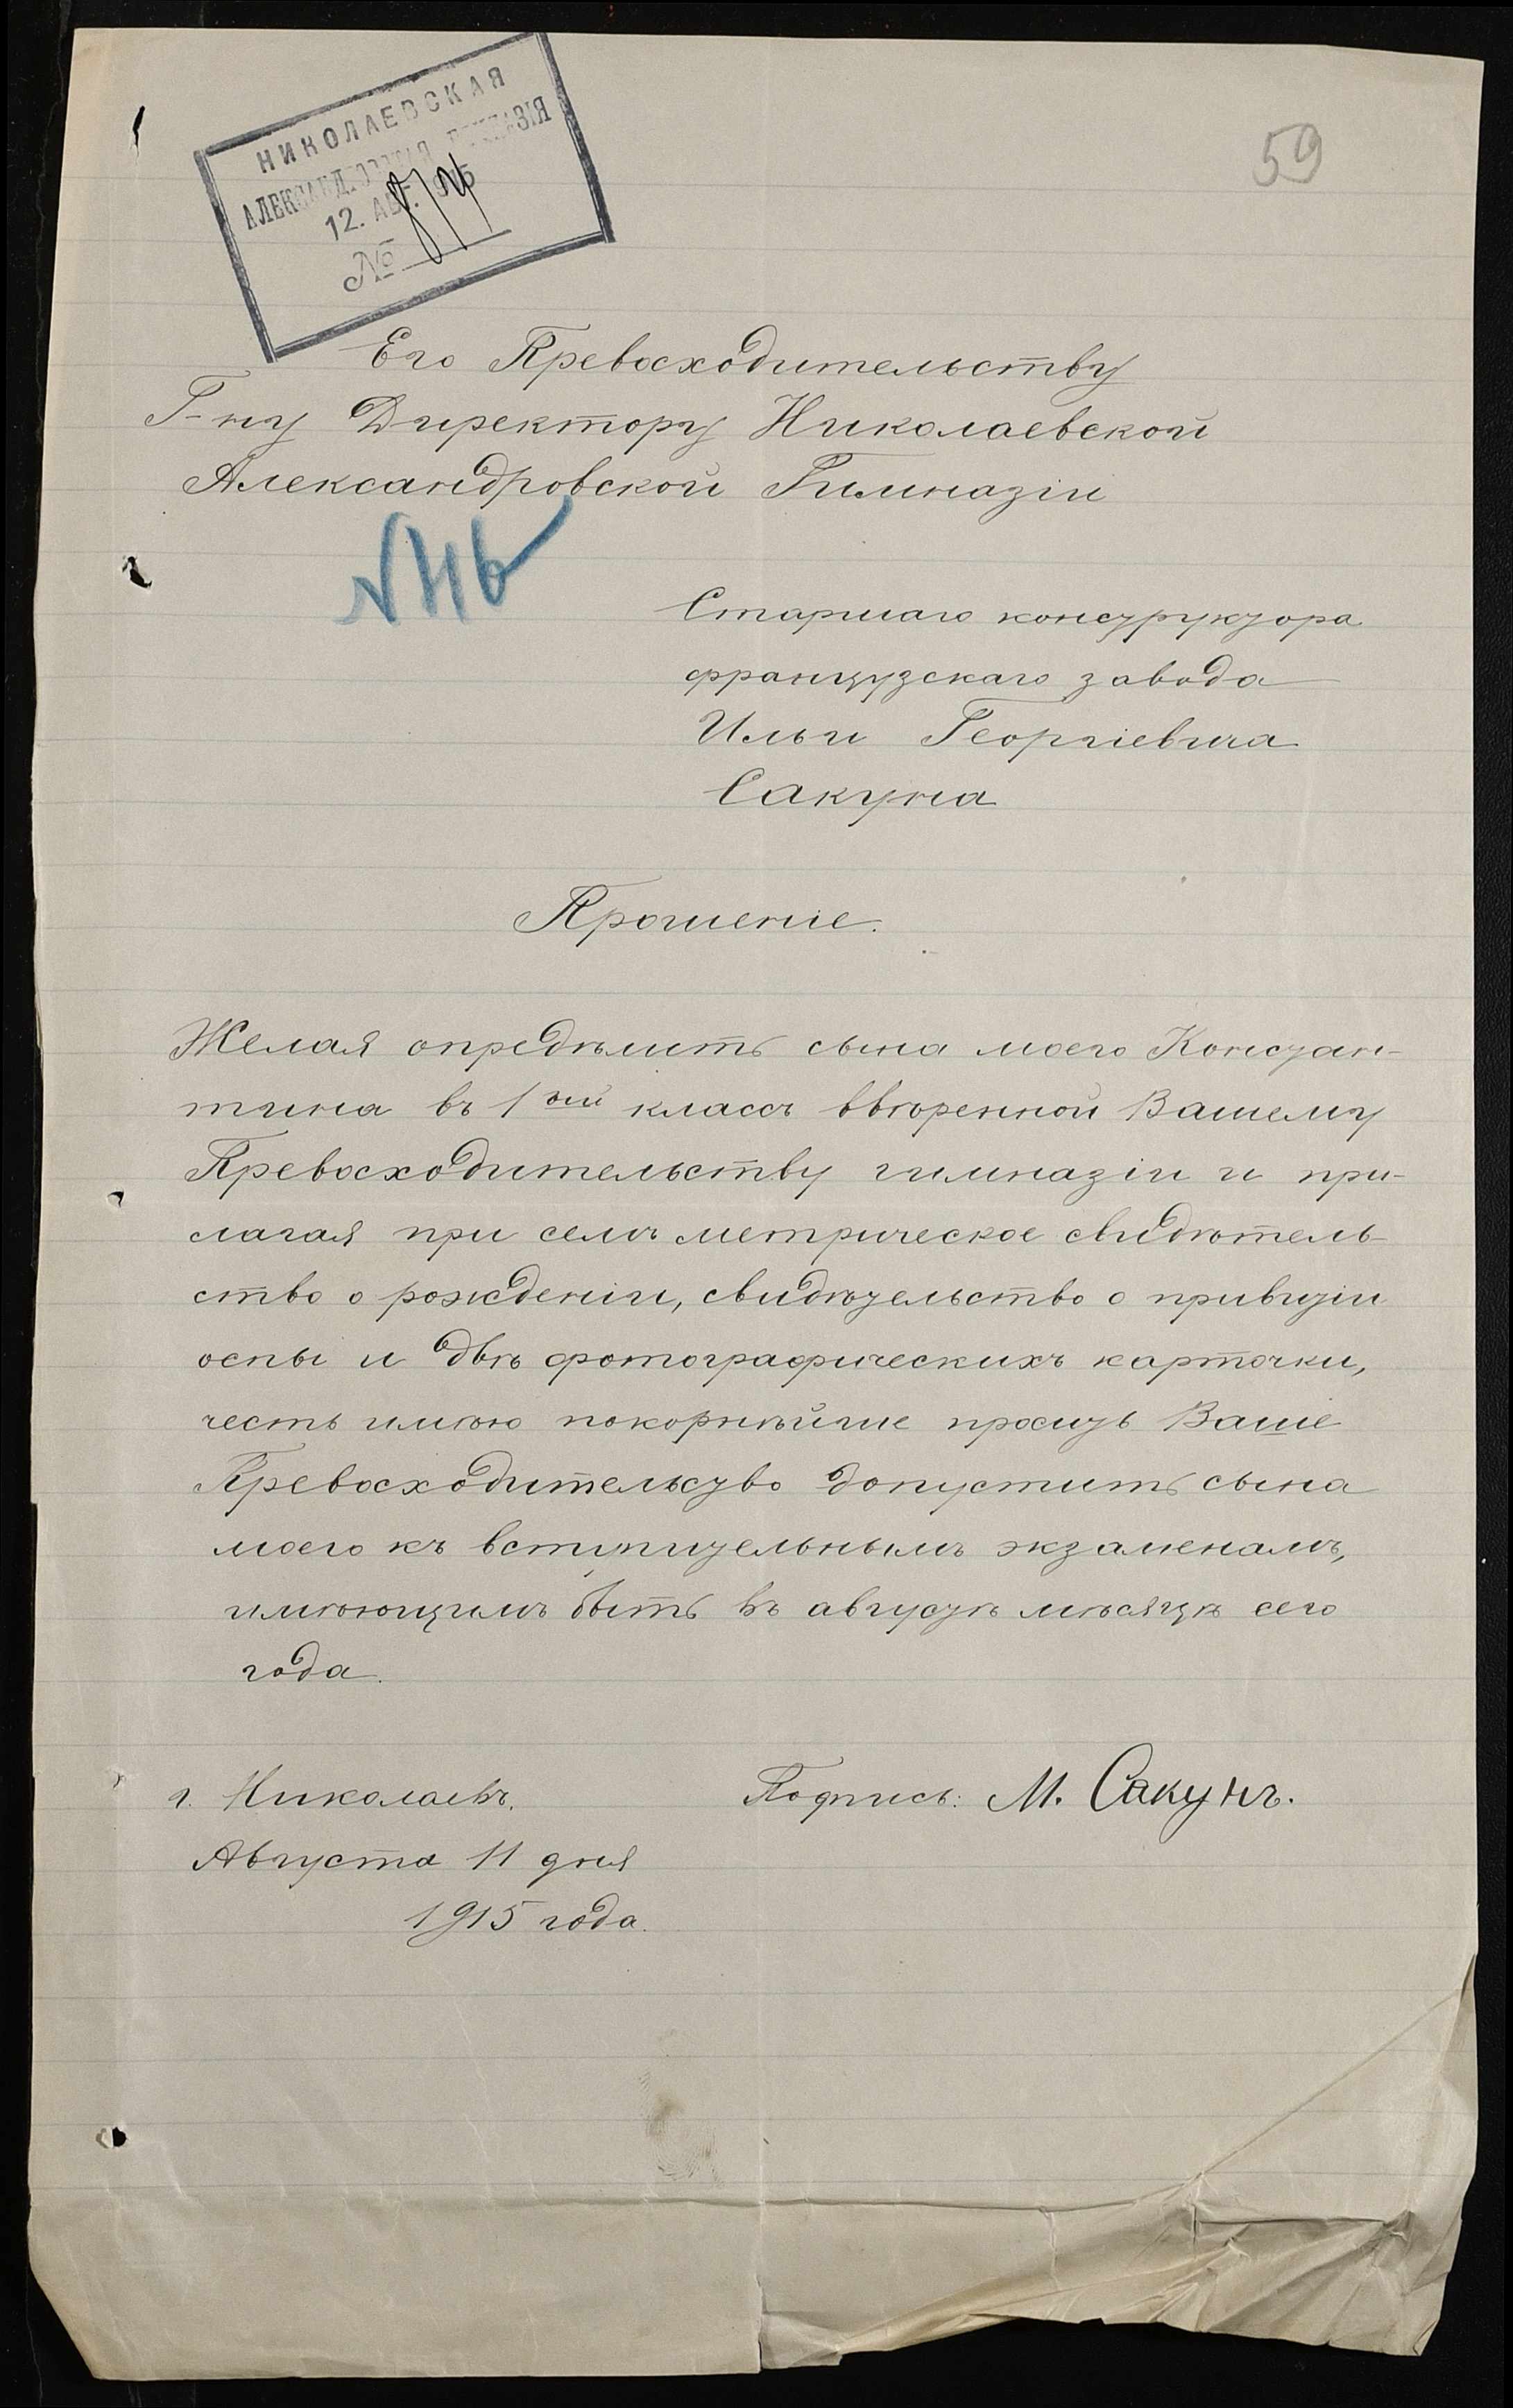 НИКОЛАЕВСКАЯ
АЛЕКСАНДРОВСКАЯ ГИМНАЗІЯ
12. АВГ. 915
№ 874
59
Его Превосходительству
Г-ну Директору Николаевской
Александровской Гимназіи
Старшаго конструктора
французскаго завода
Ильи Георгіевича
Сакуна
Прошеніе.
Желая опредѣлить сына моего Констан-
тина въ 1ый классъ ввѣренной Вашему
Превосходительству гимназіи и при-
лагая при семъ метрическое свидѣтель-
ство о рожденіи, свидѣтельство о привитіи
оспы и двѣ фотографическихъ карточки,
честь имѣю покорнѣйше просить Ваше
Превосходительство допустить сына
моего къ вступительнымъ экзаменамъ,
имѣющимъ быть въ августѣ мѣсяцѣ сего
года.
г. Николаевъ.
Подпись: И. Сакунъ.
Августа 11 дня
1915 года.